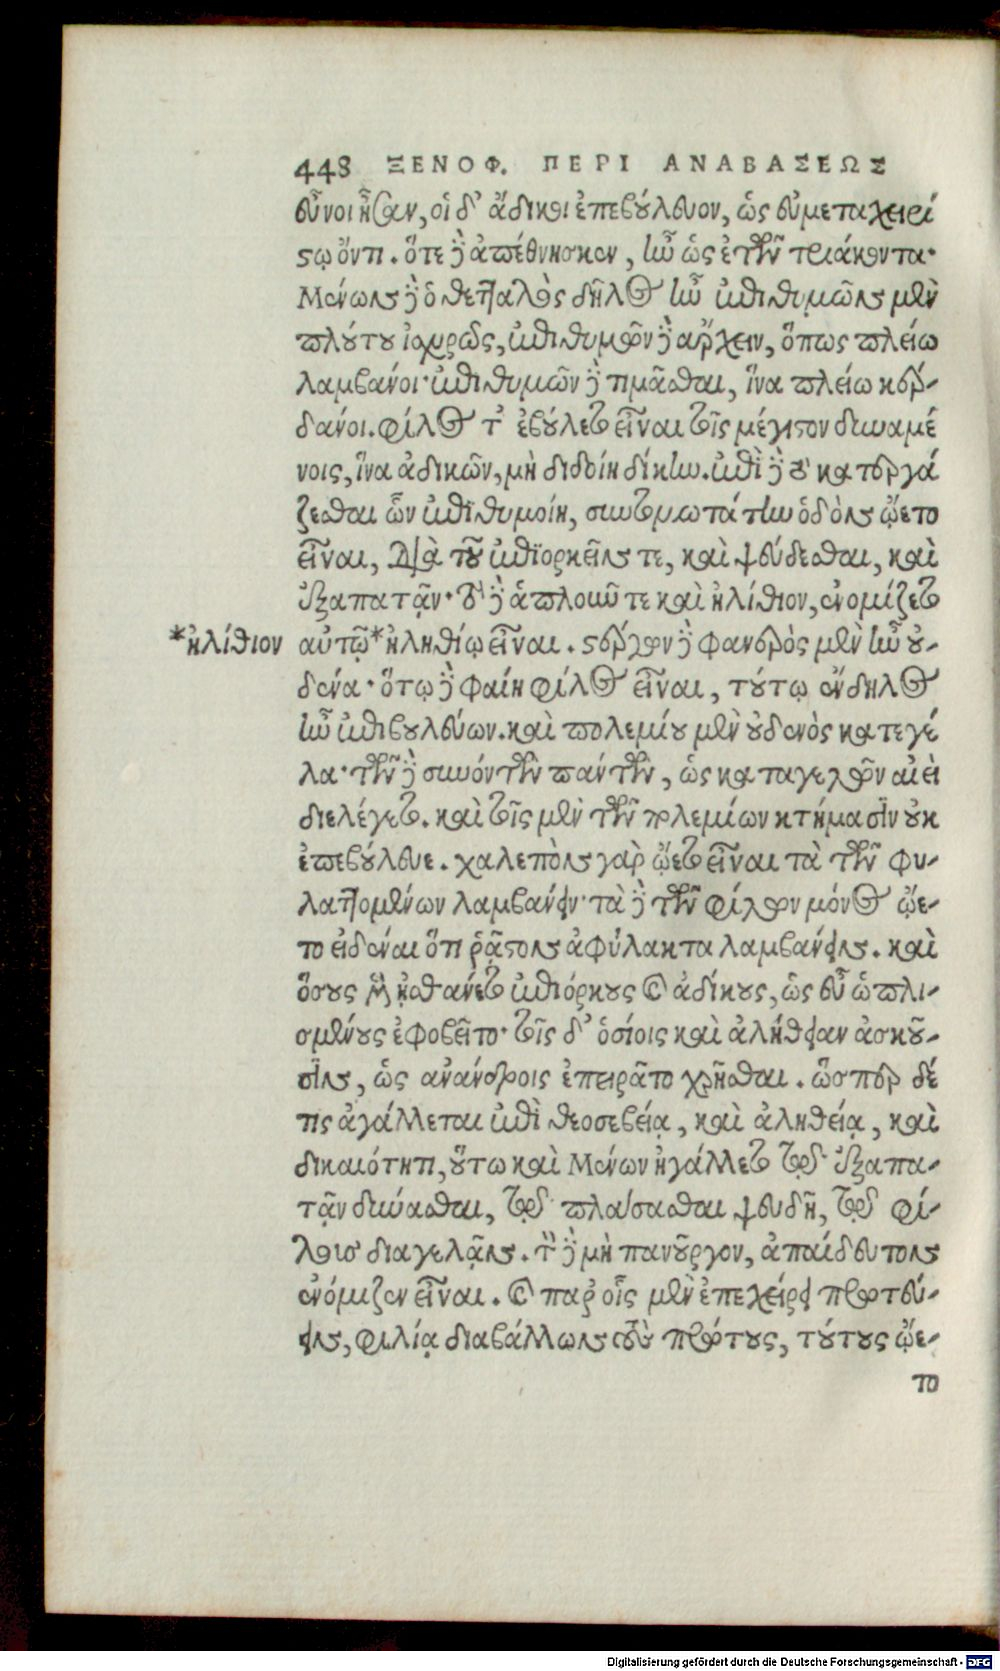 448 ΞΕΝΟΦ. ΠΕΡΙ ΑΝΑΒΑΣΕΩΣ
εὖνοι ἦσαν, οἱ δ' ἄδικοι ἐπεβούλευον, ὡς εὐμεταχειρί
στῳ ὄντι. ὅτε δὲ ἀπέθνησκεν, ἦν ὡς ἐτῶν τριάκοντα·
Μένων δὲ ὁ θετταλὸς δῆλος ἦν ἐπιθυμῶν μὲν
πλούτου ἰσχυρῶς, ἐπιθυμῶν δὲ ἄρχειν, ὅπως πλείω
λαμβάνοι· ἐπιθυμῶν δὲ τιμᾶσθαι, ἵνα πλείω κερ-
δαίνοι. φίλος τ' ἐβούλετο εἶναι τοῖς μέγιστον δυναμέ
νοις, ἵνα ἀδικῶν, μὴ διδοίη δίκην. ἐπὶ δὲ τὸ κατεργά
ζεσθαι ὧν ἐπιθυμοίη, συντομωτάτην ὁδὸν ᾤετο
εἶναι, διὰ τοῦ ἐπιορκεῖν τε, καὶ ψεύδεσθαι, καὶ
ἐξαπατᾷν· τὸ δὲ ἁπλοῦν τε καὶ ἠλίθιον, ἐνομίζετο
*ἠλίθιον αὐτῷ *ἠληθίῳ εἶναι. στέργων δὲ φανερὸς μὲν ἦν οὐ-
δένα· ὅτῳ δὲ φαίη φίλος εἶναι, τούτῳ ἔνδηλος
ἦν ἐπιβουλεύων. καὶ πολεμίου μὲν οὐδενὸς κατεγέ
λα· τῶν δὲ συνόντων πάντων, ὡς καταγελῶν αἰεὶ
διελέγετο. καὶ τοῖς μὲν τῶν πολεμίων κτήμασιν οὐκ
ἐπεβούλευε. χαλεπὸν γὰρ ᾤετο εἶναι τὰ τῶν φυ-
λαττομένων λαμβάνειν· τὰ δὲ τῶν φίλων μόνος ᾤε-
το εἰδέναι ὅτι ῥᾷστον ἀφύλακτα λαμβάνειν. καὶ
ὅσους μὲν ᾐσθάνετο ἐπιόρκους καὶ ἀδίκους, ὡς εὖ ὡπλι-
σμένους ἐφοβεῖτο· τοῖς δ' ὁσίοις καὶ ἀλήθειαν ἀσκοῦ-
σιν, ὡς ἀνάνδροις ἐπειρᾶτο χρῆσθαι. ὥσπερ δέ
τις ἀγάλλεται ἐπὶ θεοσεβείᾳ, καὶ ἀληθείᾳ, καὶ
δικαιότητι, οὕτω καὶ Μένων ἠγάλλετο τῷ ἐξαπα-
τᾷν δύνασθαι, τῷ πλάσασθαι ψευδῆ, τῷ φί-
λους διαγελᾷν. τὸν δὲ μὴ πανοῦργον, ἀπαίδευτον
ἐνόμιζεν εἶναι. καὶ παρ' οἷς μὲν ἐπεχείρει πρωτεύ-
ειν, φιλίᾳ διαβάλλων τοὺς πρώτους, τούτους ᾤε-
το
Digitalisierung gefördert durch die Deutsche Forschungsgemeinschaft - DFG